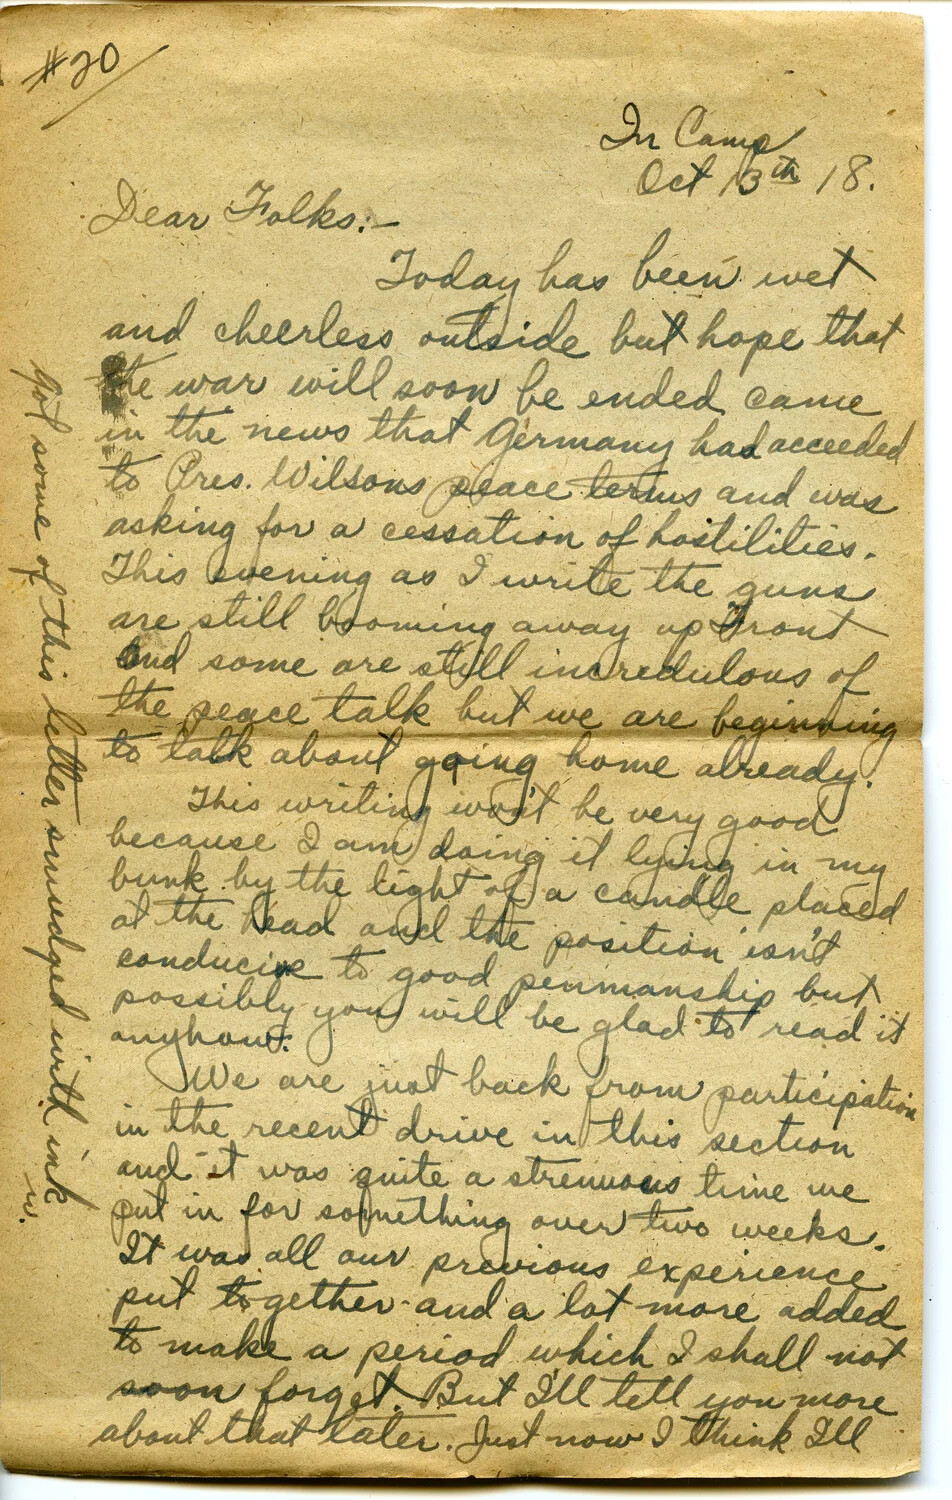 #20
In Camp
Oct 13th 18.
Dear Folks:-
Today has been wet
and cheerless outside but hope that
the war will soon be ended came
in the news that Germany had acceeded
to Pres. Wilsons peace terms and was
asking for a cessation of hostilities.
This evening as I write the guns
are still booming away up Front
and some are still incredulous of
the peace talk but we are beginning
to talk about going home already.
This writing won't be very good
because I am doing it lying in my
bunk by the light of a candle placed
at the head and the position isn't
conducive to good penmanship but
possibly you will be glad to read it
anyhow.
We are just back from participation
in the recent drive in this section
and it was quite a strenuous time we
put in for something over two weeks.
It was all our previous experience
put together and a lot more added
to make a period which I shall not
soon forget. But I'll tell you more
about that later. Just now I think I'll
Got some of this letter smudged with ink
w.